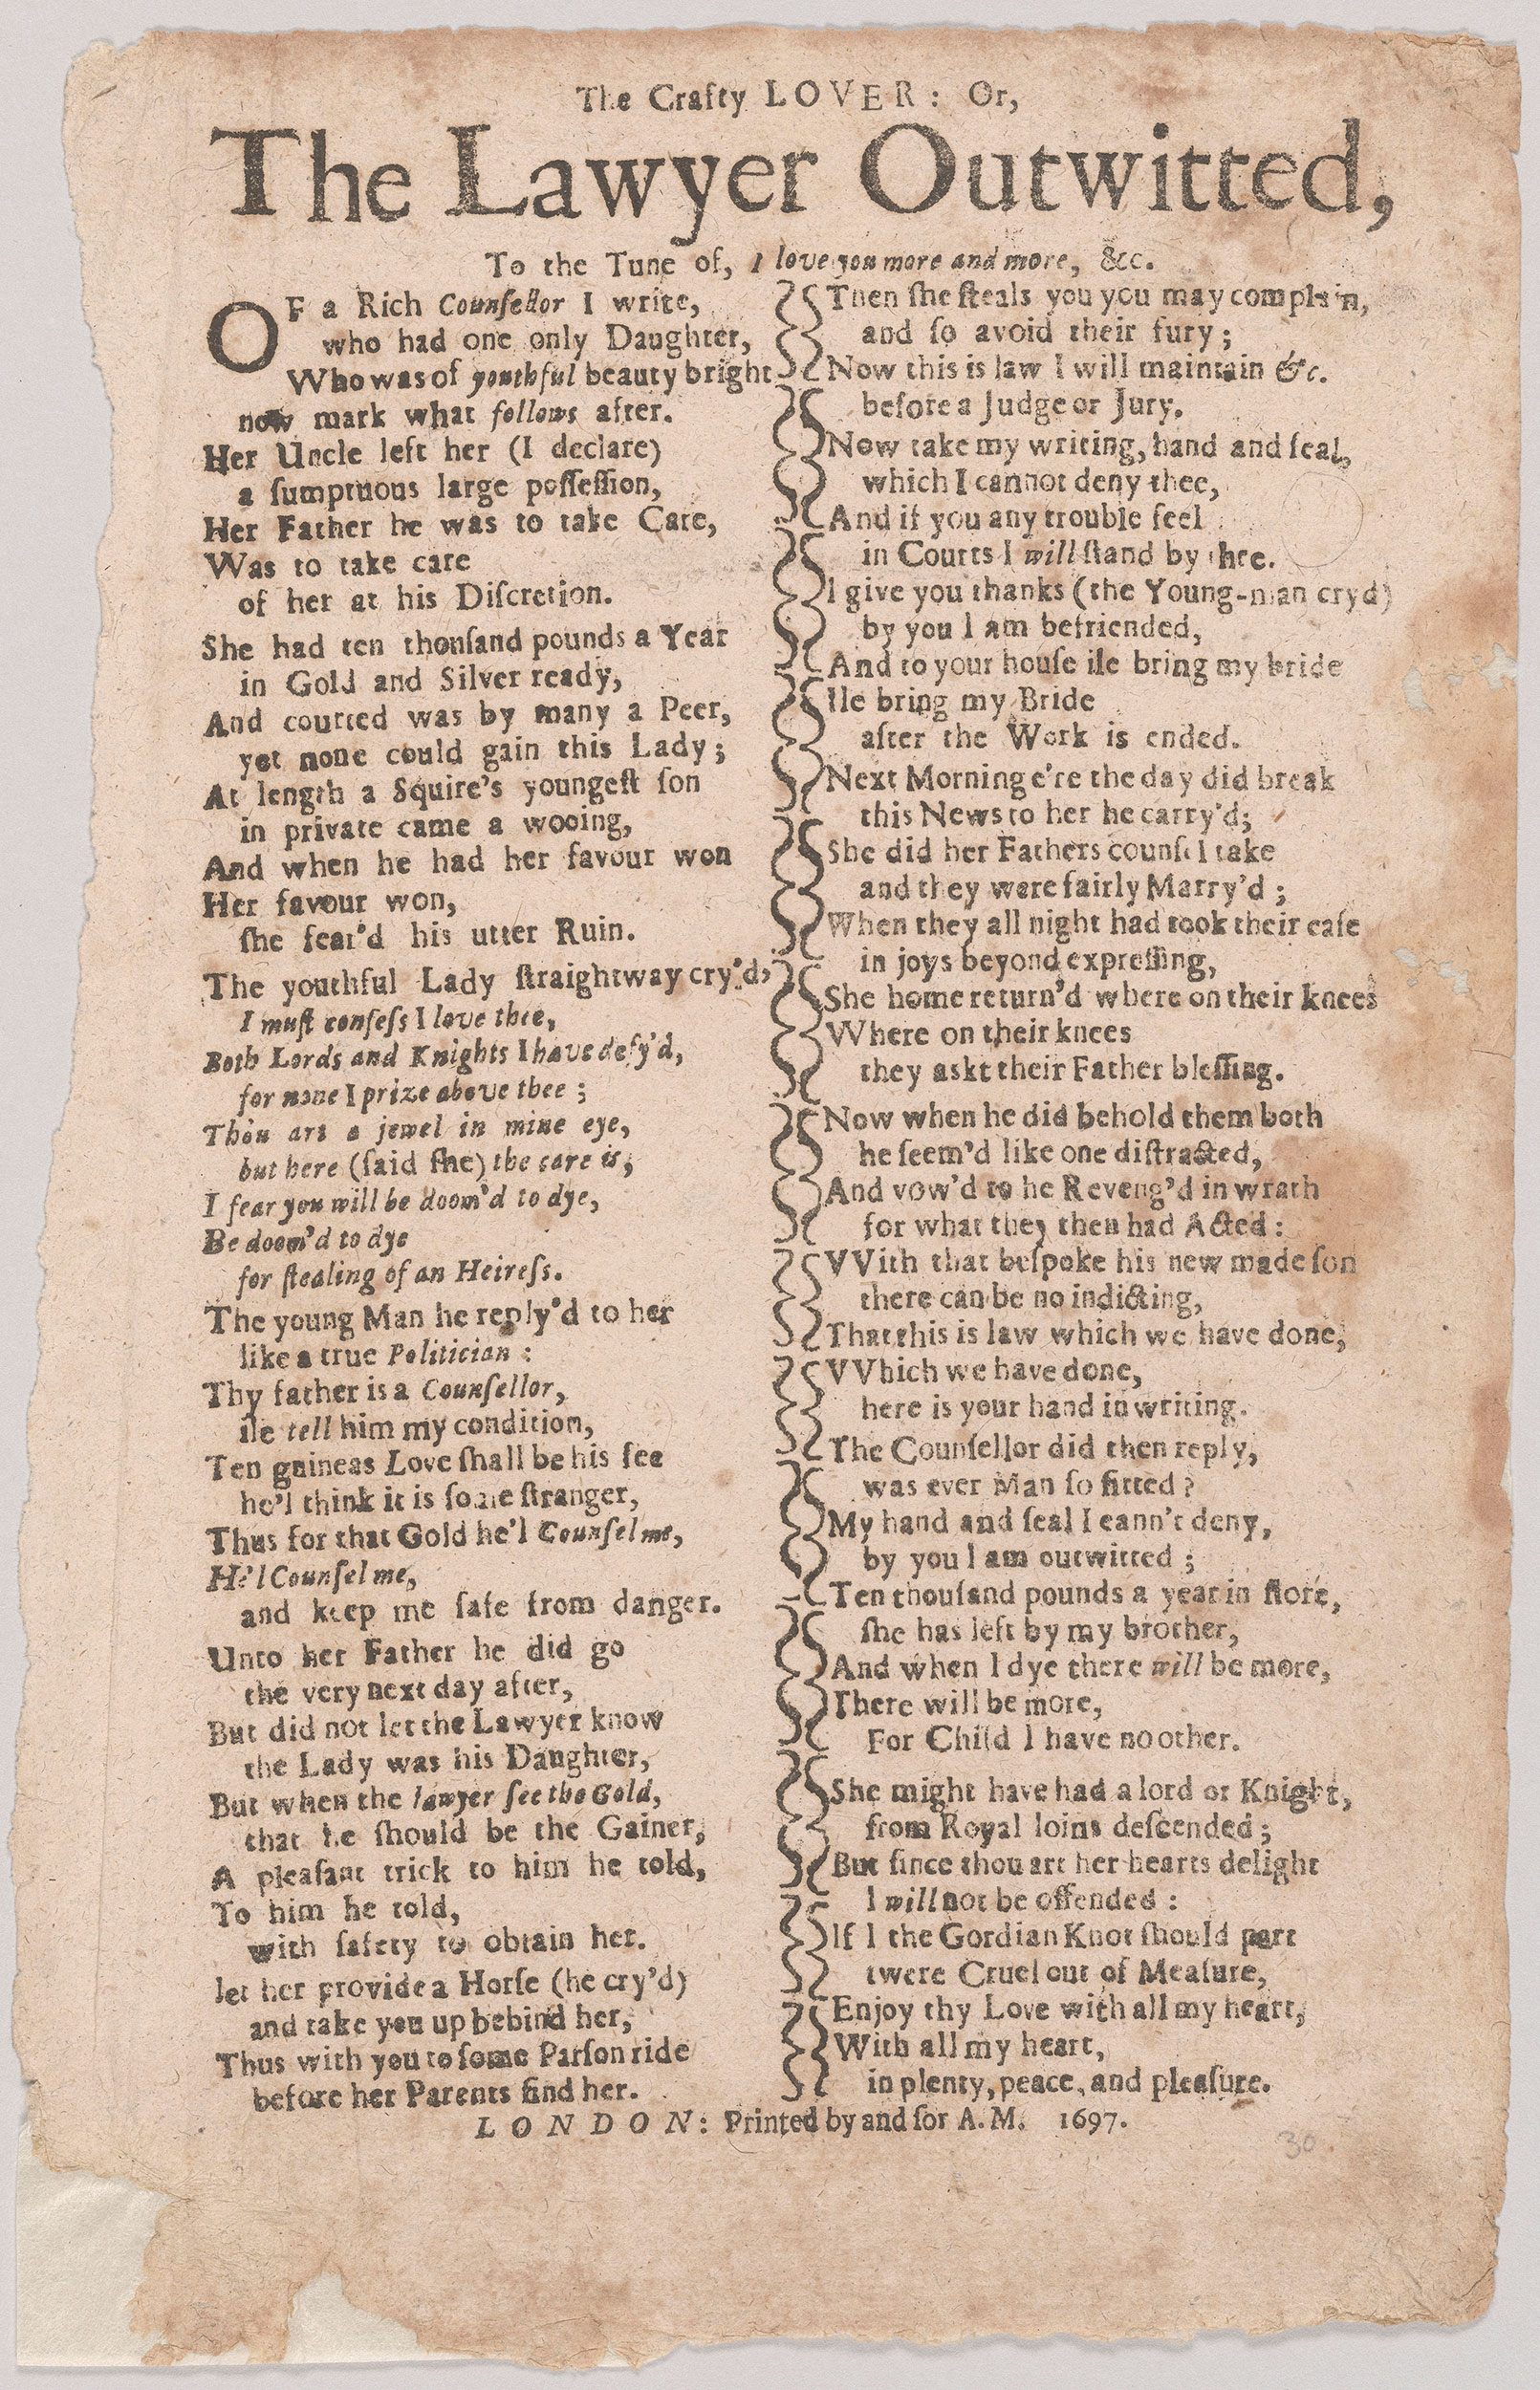 The Crafty LOVER: Or,
The Lawyer Outwitted,
To the Tune of, I love you more and more, &c.
OF a Rich Counſellor I write,
who had one only Daughter,
Who was of youthful beauty bright
now mark what follows after.
Her Uncle left her (I declare)
a ſumptuous large poſſeſſion,
Her Father he was to take Care,
Was to take care
of her at his Diſcretion.
She had ten thonſand pounds a Year
in Gold and Silver ready,
And courted was by many a Peer,
yet none could gain this Lady;
At length a Squire's youngeſt ſon
in private came a wooing,
And when he had her favour won
Her favour won,
ſhe fear'd his utter Ruin.
The youthful Lady ſtraightway cry'd,
I muſt confeſs I love thee,
Both Lords and Knights I have defy'd,
for none I prize above thee;
Thou art a jewel in mine eye,
but here (ſaid ſhe) the care is,
I fear you will be doom'd to dye,
Be doom'd to dye
for ſtealing of an Heireſs.
The young Man he reply'd to her
like a true Politician:
Thy father is a Counſellor,
ile tell him my condition,
Ten guineas Love ſhall be his fee
he'l think it is ſome ſtranger,
Thus for that Gold he'l Counſel me,
He'l Counſel me,
and keep me ſafe from danger.
Unto her Father he did go
the very next day after,
But did not let the Lawyer know
the Lady was his Daughter,
But when the lawyer ſee the Gold,
that he ſhould be the Gainer,
A pleaſant trick to him he told,
To him he told,
with ſafety to obtain her.
let her provide a Horſe (he cry'd)
and take you up behind her,
Thus with you to ſome Parſon ride
before her Parents find her.
Then ſhe ſteals you you may complain,
and ſo avoid their fury;
Now this is law I will maintain &c.
before a Judge or Jury.
Now take my writing, hand and ſeal,
which I cannot deny thee,
And if you any trouble feel
in Courts I will ſtand by thee.
I give you thanks (the Young-man cryd)
by you I am befriended,
And to your houſe ile bring my bride
Ile bring my Bride
after the Work is ended.
Next Morning e're the day did break
this News to her he carry'd;
She did her Fathers counſel take
and they were fairly Marry'd;
When they all night had took their eaſe
in joys beyond expreſſing,
She home return'd where on their knees
Where on their knees
they askt their Father bleſſing.
Now when he did behold them both
he ſeem'd like one diſtracted,
And vow'd to he Reveng'd in wrath
for what they then had Acted:
VVith that beſpoke his new made ſon
there can be no indicting,
That this is law which we have done,
VVhich we have done,
here is your hand in writing.
The Counſellor did then reply,
was ever Man ſo fitted?
My hand and ſeal I eann't deny,
by you I am outwitted;
Ten thouſand pounds a year in ſtore,
ſhe has left by my brother,
And when I dye there will be more,
There will be more,
For Child I have no other.
She might have had a lord or Knight,
from Royal loins deſcended;
But ſince thou art her hearts delight
I will not be offended:
If I the Gordian Knot ſhould part
twere Cruel out of Meaſure,
Enjoy thy Love with all my heart,
With all my heart,
in plenty, peace, and pleaſure.
LONDON: Printed by and for A. M. 1697.
30